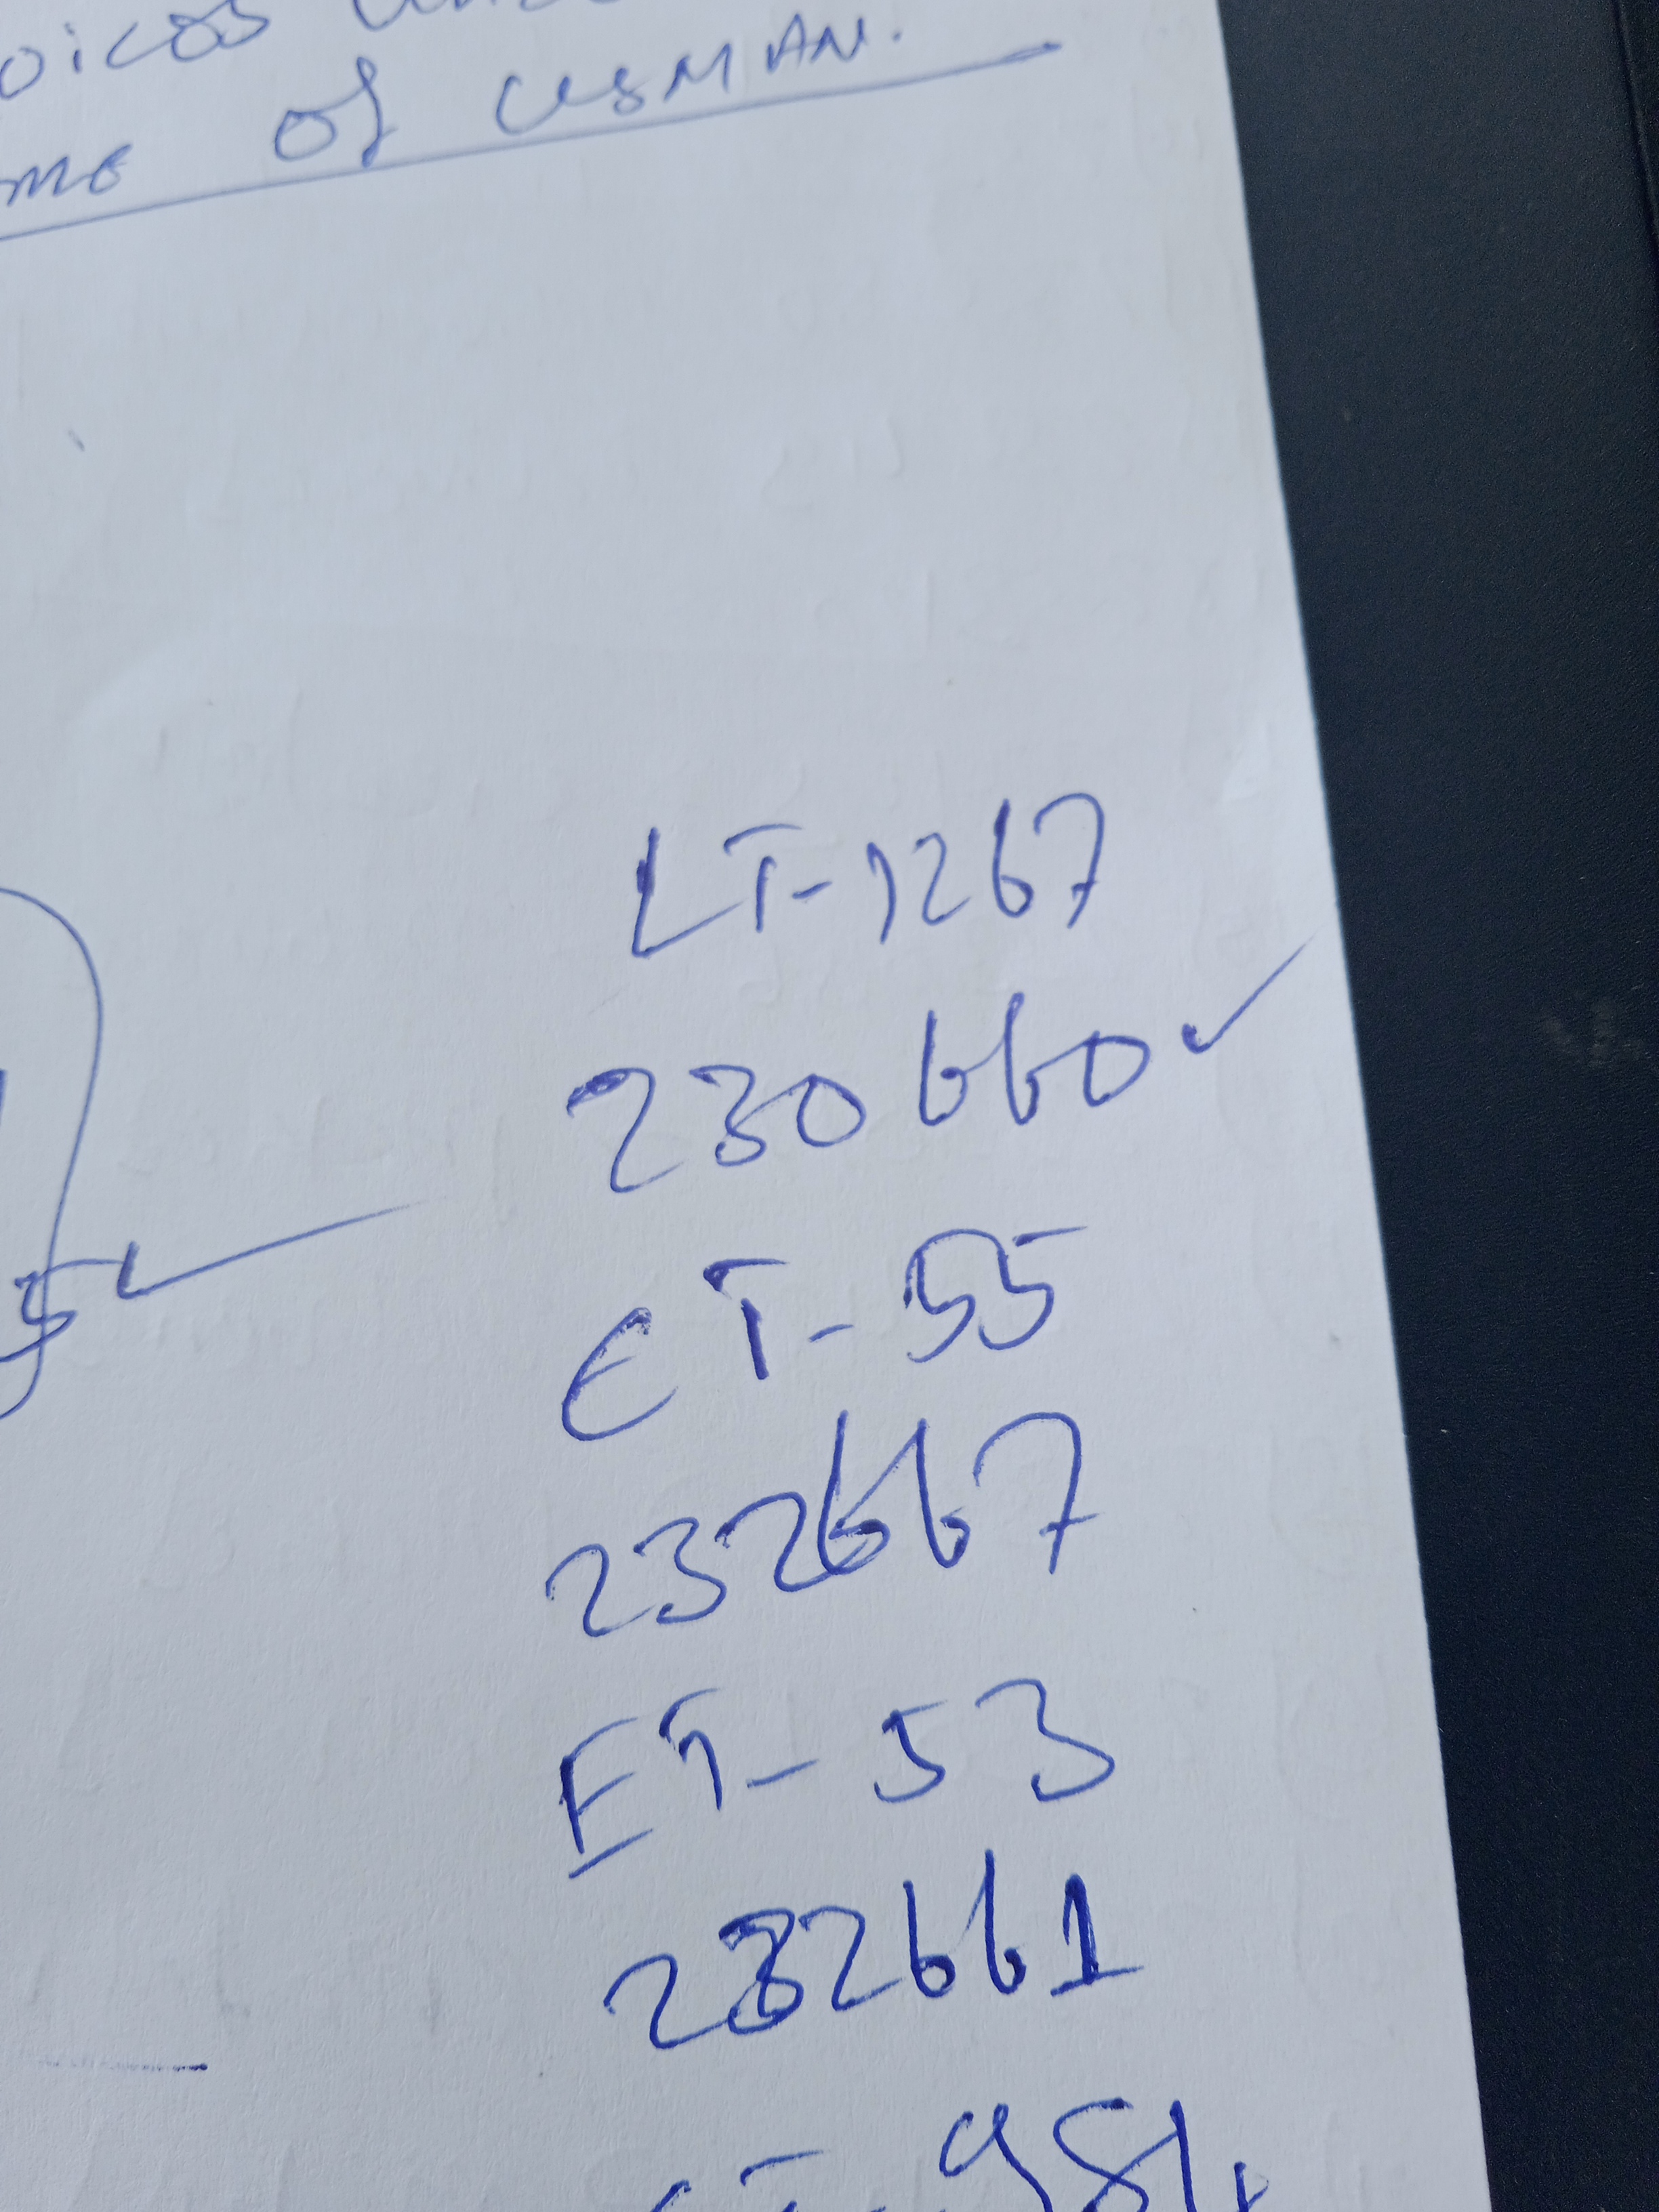 me of USMAN.
LT-1267
230660 ✓
ET-55
232667
ET-53
232661